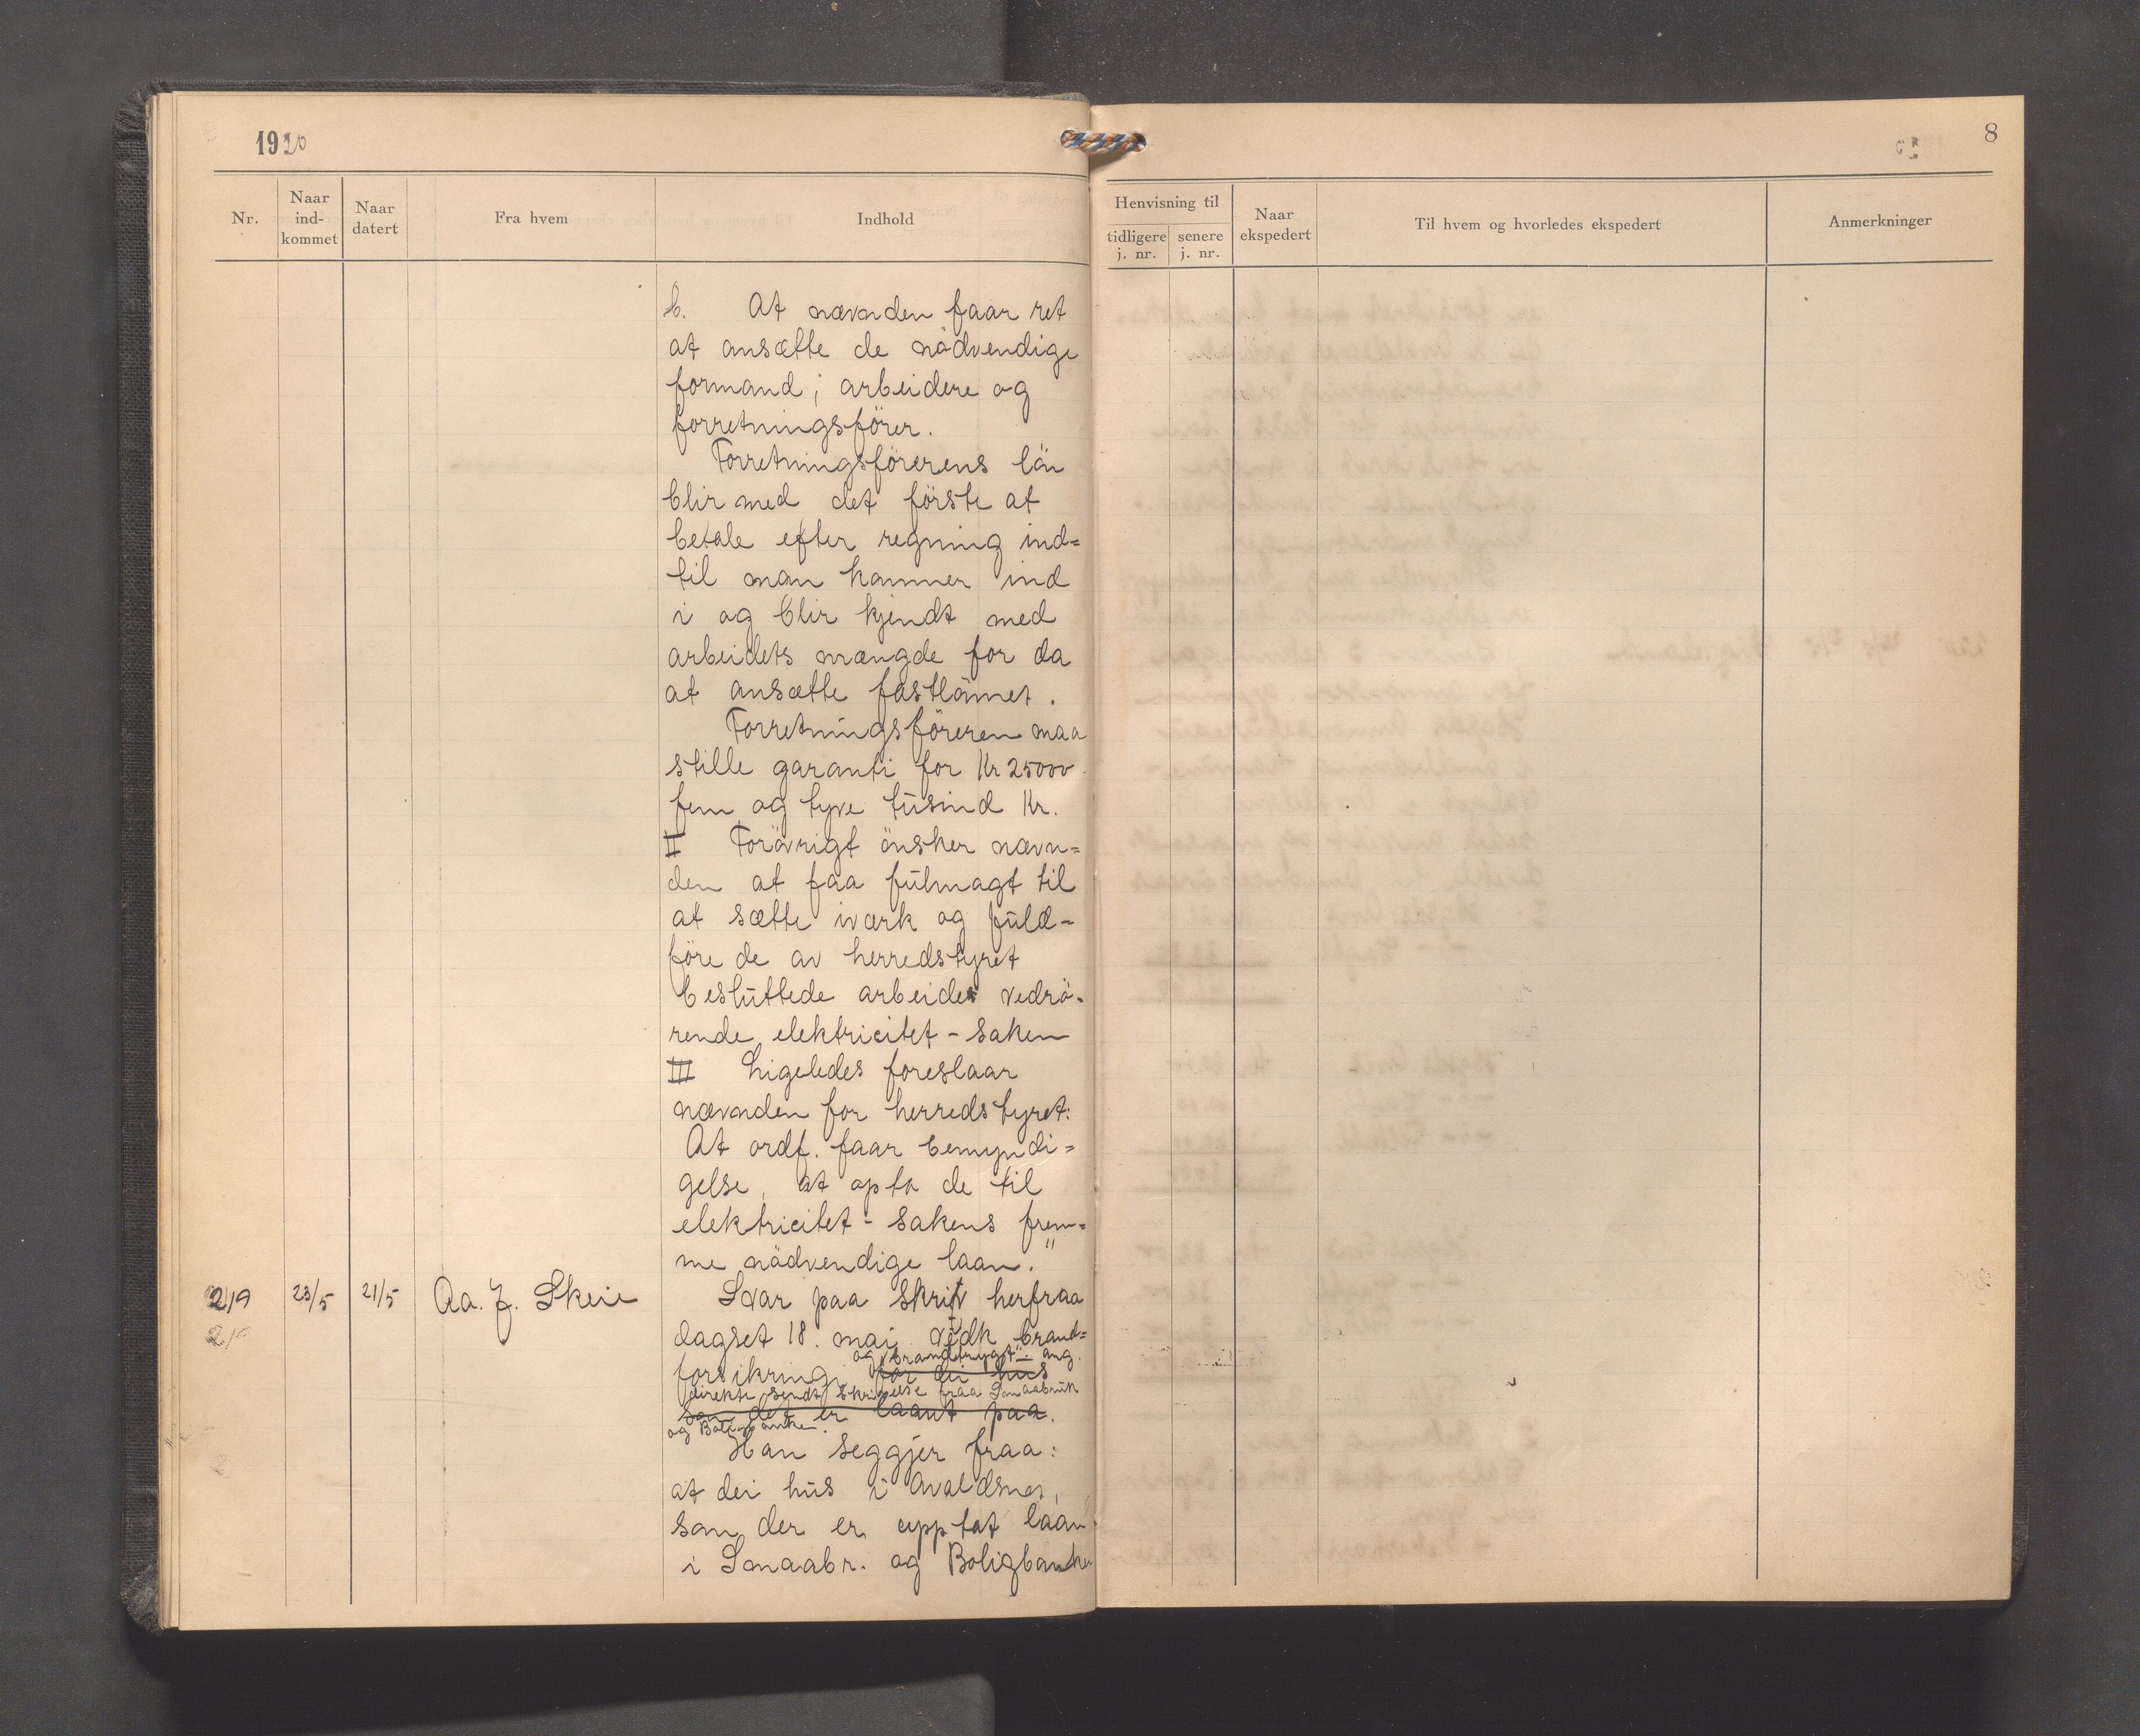 1920
8
Nr.
Naar ind- kommet
Naar datert
Fra hvem
Indhold
Henvisning til
tidligere j. nr.
senere j. nr.
Naar ekspedert
Til hvem og hvorledes ekspedert
Anmerkninger
b. At nævnden faar ret
at ansætte de nödvendige
formand; arbeidere og
forretningsförer.
Forretningsförerens lön
blir med det förste at
betale efter regning ind=
til man kommer ind
i og blir kjendt med
arbeidets mængde for da
at ansætte fastlönnet.
Forretningsföreren maa
stille garanti for Kr 25000
fem og tyve tusind Kr.
II Forövrigt önsker nævn=
den at faa fulmagt til
at sætte iværk og fuld-
före de av herredstyret
besluttede arbeider vedrö-
rende elektricitet-saken
III Ligeledes foreslaar
nævnden for herredstyret:
At ordf. faar bemyndi=
gelse at opta de til
elektricitet-sakens frem=
me nödvendige laan."
219 23/5 21/5 Aa. J. Skeie Svar paa skriv herfraa
dagset 18. mai vedk brand=
og "brandtrygt" ang.
forsikring for dei hus
direkte sendt skrivelse fraa Smaabruk
som det er laant paa.
og Boligbanken.
Han seggjer fraa:
at dei hus i Avaldsnes,
som der er upptat laan
i Smaabr. og Boligbanken